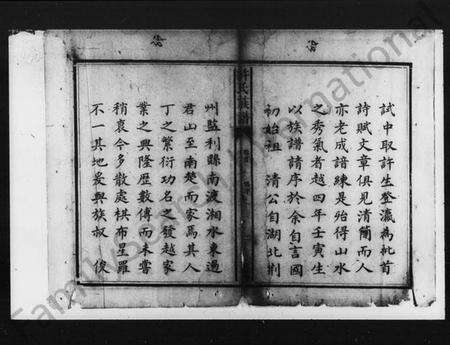 試中取許生登瀛為批首
詩賦文章俱見清簡而人
亦老成諳練是殆得山水
之秀氣者越四年壬寅生
以族譜請序於余自言國
初始祖 清公自湖北荆
許氏族譜
州監利縣南波湘水東過
君山至南楚而家焉其人
丁之繁衍功名之發越家
業之興隆歷數傳而未嘗
稍衰今多散處棋布星羅
不一其地爰與族叔 俊